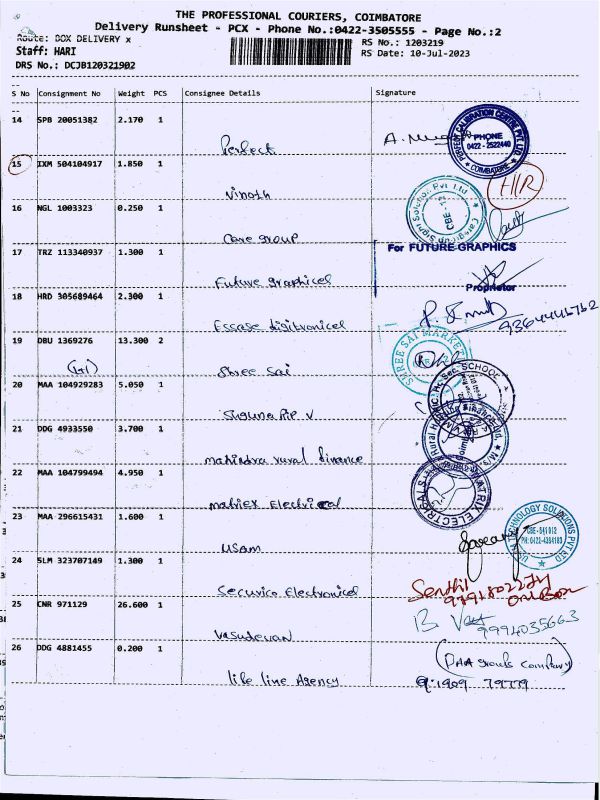 THE PROFESSIONAL COURIERS, COIMBATORE
Delivery Runsheet - PCX - Phone No.:0422-3505555 - Page No.:2
Route: DOX DELIVERY x
RS No.: 1203219
Staff: HARI
RS Date: 10-Jul-2023
DRS No.: DCJB120321902
S No Consignment No Weight PCS Consignee Details Signature
14 SPB 20051382 2.170 1
Perfect
PHONE
0422 - 2522440
COIMBATORE
15 IXM 504104917 1.850 1
Vinoth
16 NGL 1003323 0.250 1
Care group
CBE - 12
17 TRZ 113340937 1.300 1
Future graphices
For FUTURE GRAPHICS
Proprietor
18 HRD 305689464 2.300 1
Essae digitronical
19 DBU 1369276 13.300 2
Shree Sai
SHREE SAI MARKET
20 MAA 104929283 5.050 1
Suguna RIP V
Hr. Sec. SCHOOL
21 DDG 4933550 3.700 1
mahindra rural finance
22 MAA 104799494 4.950 1
matrix Electrical
MATRIX ELECTRICALS
23 MAA 296615431 1.600 1
USam
TECHNOLOGY SOLUTIONS PVT LTD
24 SLM 323707149 1.300 1
Securico Electronical
Senthil
25 CNR 971129 26.600 1
Vasudevan
9994035663
26 DDG 4881455 0.200 1
life line Agency